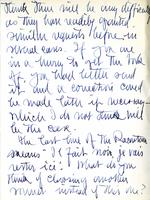 think there will be any difficulty
as they have readily granted
similar requests before in
several cases. If you are
in a hurry to get the book
off, you had better send
it and a correction could
be made later if necessary —
which I do not think will
be the case.
The last line of the
means: "I fait nom je vais
rester ici". What do you
think of choosing another
sonnet instead of this one?